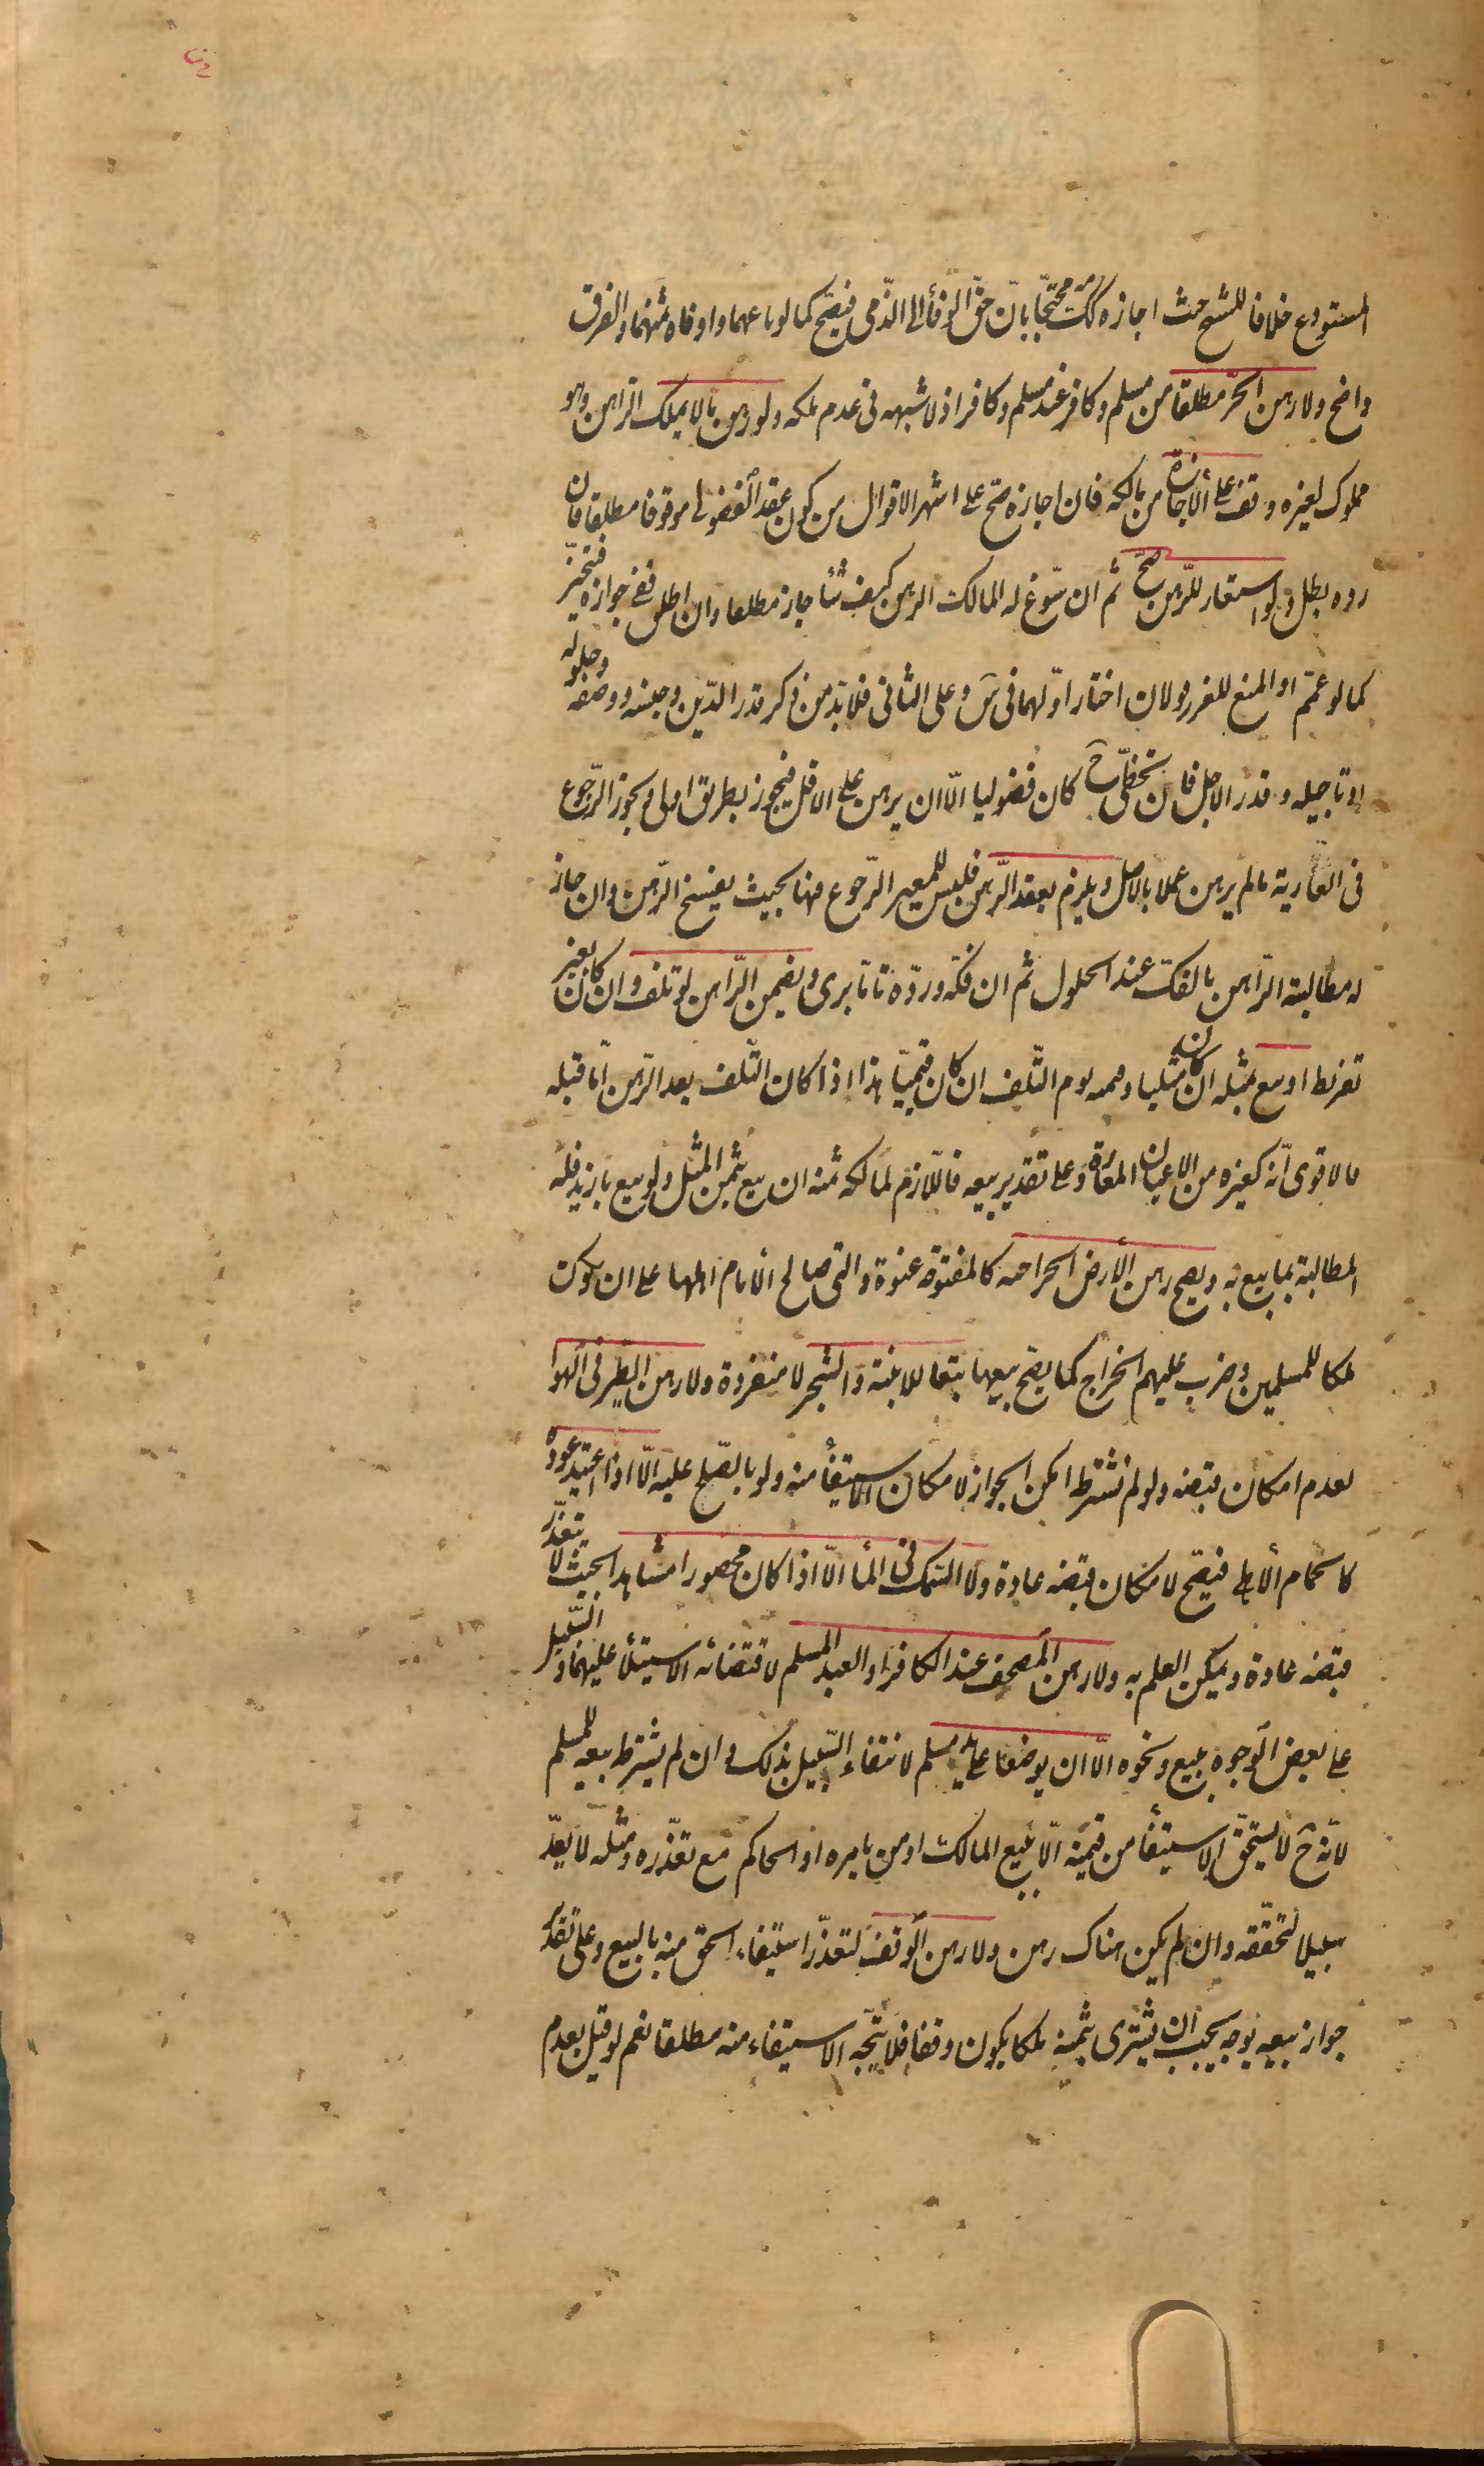 المستودع خلافا للشيخ حيث اجازه كك محتجّا بانّ حقّ الوفأ الى الذّمى فيصحّ كما لو باعهما واوفاه ثمنهما والفرق
واضح ولا رهن الحرّ مطلقا من مسلم وكافر عند مسلم وكافر اذ لا شبهه فى عدم ملكه ولو رهن ما لا يملك الرّاهن وهو
مملوك لغيره وقف على الأجازة من مالكه فان اجازه صحّ على اشهر الاقوال من كون عقد الفضولى موقوفا مطلقا فان
ردّه بطل ولو استعار للرّهن صحّ ثم ان سّوغ له المالك الرهن كيف شأ جاز مطلقا وان اطلق ففى جوازه فيتخيّر
كما لو عمّم او المنع للغرر قولان اختار اوّلهما فى س وعلى الثانى فلا بدّ من ذكر قدر الدّين وجنسه ووصفه وحلوله
او تاجيله وقدر الاجل فان تخطّى ح كان فضوليا الّا ان يرهن على الاقل فيجوز بطريق اولى ويجوز الرّجوع
فى العارية ما لم يرهن عملا بالاصل ويلزم بعقد الرّهن فليس للمعير الرّجوع فيها بحيث يفسخ الرّهن وان جاز
له مطالبة الرّاهن بالفكّ عند الحلول ثم ان فكّه وردّه تامّا برى ويضمن الرّاهن لو تلف وان كان بغير
تفريط او بيع بمثله ان كان مثليا وقيمته يوم التّلف ان كان قيميّا هذا اذا كان التّلف بعد الرّهن امّا قبله
فالاقوى انّه كغيره من الاعيان المعارة وعلى تقدير بيعه فاللّازم لمالكه ثمنه ان بيع بثمن المثل ولو بيع بازيد فله
المطالبة بما بيع به ويصح رهن الأرض الخراجيه كالمفتوحة عنوة والتى صالح الأمام اهلها على ان يكون
ملكا للمسلمين وضرب عليهم الخراج كما يصحّ بيعها تبعا للابنية والشجر لا منفردة ولا رهن الطّير فى الهوأ
لعدم امكان قبضه ولو لم نشترطه امكن الجواز لامكان الاستيفأ منه ولو بالصّلح عليه الّا اذا اعتيد عوده
كالحمام الأهلى فيصحّ لامكان قبضه عادة ولا السّمك فى المأ الّا اذا كان محصورا مشاهدا بحيث لا يتعذّر
قبضه عادة ويمكن العلم به ولا رهن المصحف عند الكافر او العبد المسلم لاقتضائه الاستيلأ عليهما والسّبيل
على بعض الوجوه ببيع ونحوه الّا ان يوضعا على يد مسلم لانتفاء السّبيل بذلك وان لم يشترط بيعه للمسلم
لانّه ح لا يستحقّ الاستيفأ من قيمته الّا ببيع المالك او من يامره او الحاكم مع تعذّره ومثله لا يعدّ
سبيلا لتحقّقه وان لم يكن هناك رهن ولا رهن الوقف لتعذّر استيفاء الحق منه بالبيع وعلى تقدير
جواز بيعه بوجه يجب ان يشترى بثمنه ملكا يكون وقفا فلا يتّجه الاستيفاء منه مطلقا نعم لو قيل بعدم